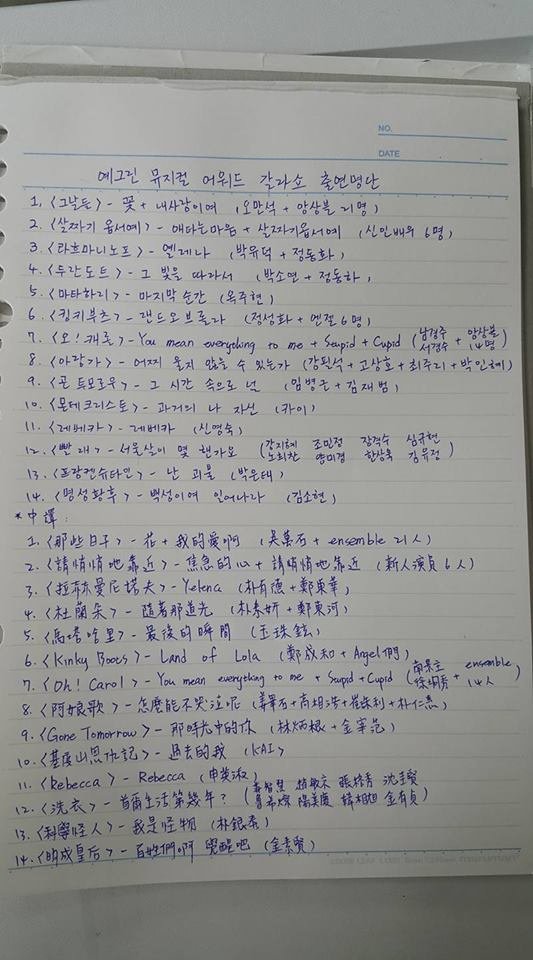 NO.
DATE
예그린 뮤지컬 어워드 갈라쇼 출연명단
1. <그날들> - 꽃 + 내사랑이여 (오만석 + 앙상블 21명)
2. <살짜기 옵서예> - 애타는마음 + 살짜기옵서예 (신인배우 6명)
3. <라흐마니노프> - 옐레나 (박유덕 + 정동화)
4. <투란도트> - 그 빛을 따라서 (박소연 + 정동하)
5. <마타하리> - 마지막 순간 (옥주현)
6. <킹키부츠> - 랜드오브롤라 (정성화 + 엔젤 6명)
7. <오! 캐롤> - You mean everything to me + Stupid + Cupid (남경주 서경수 + 앙상블 14명)
8. <아랑가> - 어찌 울지 않을 수 있는가 (강필석 + 고상호 + 최주리 + 박인혜)
9. <곤 투모로우> - 그 시간 속으로 널 (임병근 + 김재범)
10. <몬테크리스토> - 과거의 나 자신 (카이)
11. <레베카> - 레베카 (신영숙)
12. <빨래> - 서울살이 몇 핸가요 (강지혜 조민정 장격수 심규현
노희찬 양미경 한상욱 김유정)
13. <프랑켄슈타인> - 난 괴물 (박은태)
14. <명성황후> - 백성이여 일어나라 (김소현)
*中譯:
1. <那些日子> - 花 + 我的愛啊 (吳萬石 + ensemble 21人)
2. <請悄悄地靠近> - 焦急的心 + 請悄悄地靠近 (新人演員 6人)
3. <拉赫曼尼諾夫> - Yelena (朴有德 + 鄭東華)
4. <杜蘭朵> - 隨著那道光 (朴素妍 + 鄭東河)
5. <馬塔哈里> - 最後的瞬間 (玉珠鉉)
6. <Kinky Boots> - Land of Lola (鄭成和 + Angel們)
7. <Oh! Carol> - You mean everything to me + Stupid + Cupid (南景主 徐炯秀 + ensemble 14人)
8. <阿娘歌> - 怎麼能不哭泣呢 (姜畢石 + 高相浩 + 崔朱利 + 朴仁惠)
9. <Gone Tomorrow> - 那時光中的你 (林炳根 + 金宰范)
10. <基度山恩仇記> - 過去的我 (KAI)
11. <Rebecca> - Rebecca (申英淑)
12. <洗衣> - 首爾生活第幾年? (姜智慧 趙敏京 張格秀 沈圭賢
魯希燦 陽美庚 韓相旭 金有貞)
13. <科學怪人> - 我是怪物 (朴銀泰)
14. <明成皇后> - 百姓們啊 覺醒吧 (金素賢)